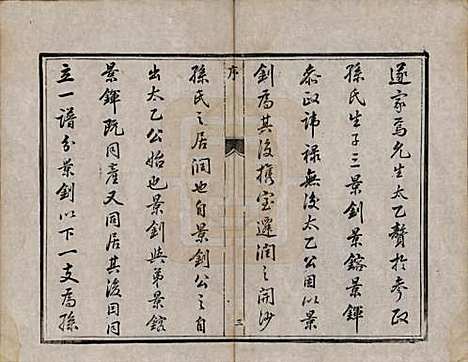 遂家焉先生太乙贅於參政
孫氏生子三景釗景鎔景鍕
參政諱祿無後太乙公因以景
釗爲其後攜室遷潤之開沙
序
三
孫氏之居潤也自景釗公之自
出太乙公始也景釗與弟景鎔
景鍕既同產又同居其後因同
立一譜分景釗以下一支爲孫